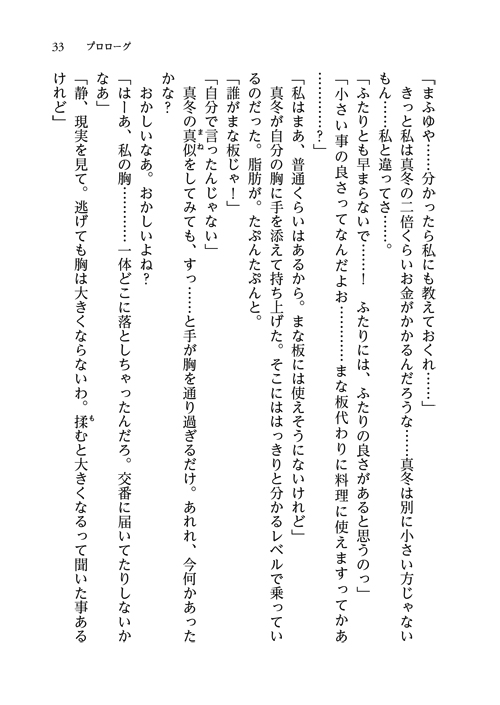 33　プロローグ
『まふゆや……分かったら私にも教えておくれ……」
きっと私は真冬の二倍くらいお金がかかるんだろうな……真冬は別に小さい方じゃない
もん……私と違ってさ……。
「ふたりとも早まらないで……！　ふたりには、ふたりの良さがあると思うのっ」
「小さい事の良さってなんだよお…………まな板代わりに料理に使えますってかあ
…………？」
「私はまあ、普通くらいはあるから。まな板には使えそうにないけれど」
真冬が自分の胸に手を添えて持ち上げた。そこにははっきりと分かるレベルで乗ってい
るのだった。脂肪が。たぷんたぷんと。
「誰がまな板じゃ！」
「自分で言ったんじゃない」
真冬の真似をしてみても、すっ……と手が胸を通り過ぎるだけ。あれれ、今何かあった
かな？
おかしいなあ。おかしいよね？
「はーあ、私の胸…………一体どこに落としちゃったんだろ。交番に届いてたりしないか
なあ」
「静、現実を見て。逃げても胸は大きくならないわ。揉むと大きくなるって聞いた事ある
けれど」